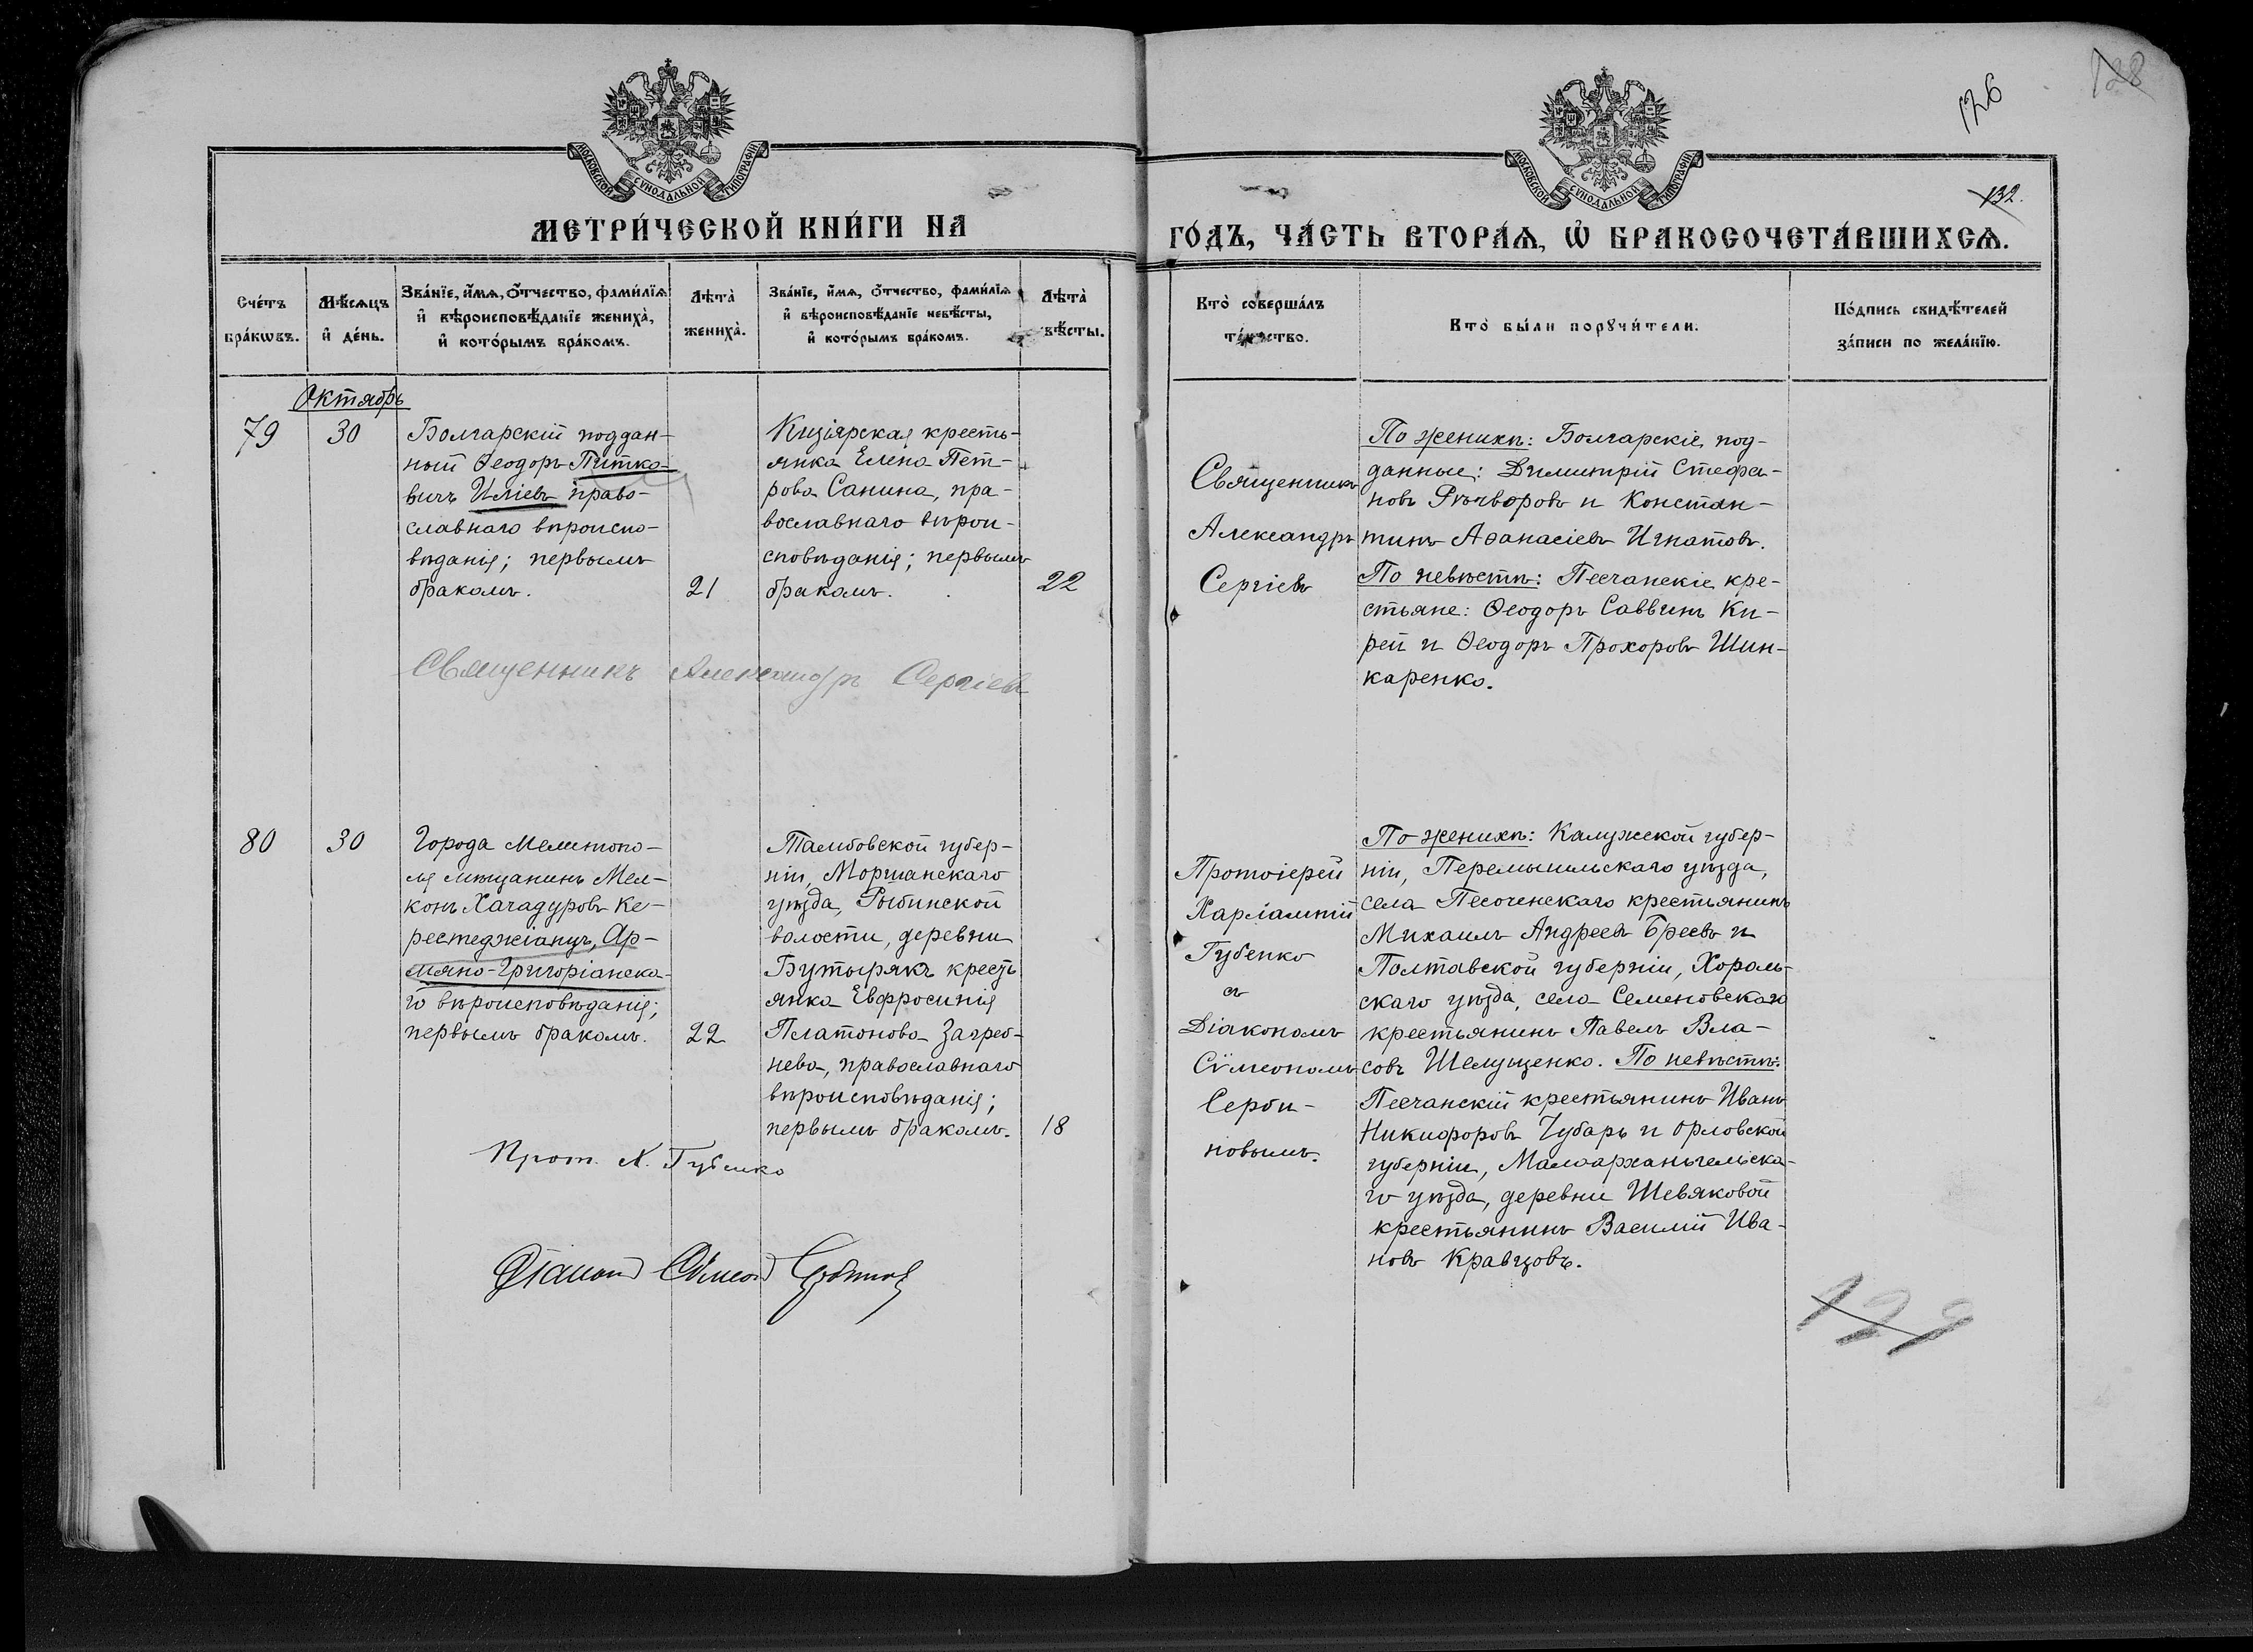 126
128
МОСКОВСКОЙ СѴНОДАЛЬНОЙ ТИПОГРАФІИ
МОСКОВСКОЙ СѴНОДАЛЬНОЙ ТИПОГРАФІИ
132.
МЕТРИ́ЧЕСКОЙ КНИ́ГИ НА
ГО́ДЪ, ЧА́СТЬ ВТОРА́Ѧ, Ѽ БРАКОСОЧЕТА́ВШИХСѦ.
Сче́тъ
бра́кѡвъ.
Мѣ́сѧцъ
и҆ де́нь.
Зва́нїе, и҆́мѧ, ѻ҆́тчество, фами́лїѧ
и҆ вѣроисповѣ́данїе жениха̀,
и҆ кото́рымъ бра́комъ.
Лѣта̀
жениха̀.
Зва́нїе, и҆́мѧ, ѻ҆́тчество, фами́лїѧ
и҆ вѣроисповѣ́данїе невѣ́сты,
и҆ кото́рымъ бра́комъ.
Лѣта̀
вѣ́сты.
Кто̀ соверша́лъ
та́инство.
Кто̀ бы́ли порꙋчи́тели.
По́дпись свидѣ́телей
за́писи по жела́нїю.
Октябрь
79
30
Болгарскій поддан-
ный Ѳеодоръ Питко-
вичъ Иліевъ право-
славнаго вѣроиспо-
вѣданія; первымъ
бракомъ.
21
Кизіярская кресть-
янка Елена Пет-
рова Санина, пра-
вославнаго вѣрои-
сповѣданія; первымъ
бракомъ.
22
Священникъ
Александръ
Сергіевъ
По женихѣ: Болгарскіе под-
данные: Димитрій Стефа-
новъ Рѣчворовъ и Констан-
тинъ Аѳанасіевъ Игнатовъ.
По невѣстѣ: Песчанскіе кре-
стьяне: Ѳеодоръ Саввинъ Ки-
рей и Ѳеодоръ Прохоровъ Шин-
каренко.
Священникъ Александръ Сергіевъ
80
30
Города Мелитопо-
ля мѣщанинъ Мел-
конъ Хачадуровъ Ке-
рестеджіанцъ, Ар-
мяно-Григоріанска-
го вѣроисповѣданія;
первымъ бракомъ.
22
Тамбовской губер-
ніи, Моршанскаго
уѣзда, Рыбинской
волости, деревни
Бутырякъ кресть
янка Евфросинія
Платонова Загреб-
нева, православнаго
вѣроисповѣданія;
первымъ бракомъ.
18
Протоіерей
Харлампій
Губенко
съ
Діакономъ
Сѵмеономъ
Серби-
новымъ.
По женихѣ: Калужской губер-
ніи, Перемышльскаго уѣзда,
села Песоченскаго крестьянинъ
Михаилъ Андреевъ Бреевъ и
Полтавской губерніи, Хороль-
скаго уѣзда, села Семеновскаго
крестьянинъ Павелъ Вла-
совъ Шелущенко. По невѣстѣ:
Песчанскій крестьянинъ Иванъ
Никифоровъ Чубарь и Орловской
губерніи, Малоархангельска-
го уѣзда, деревни Шевяковой
крестьянинъ Василій Ива-
новъ Кравцовъ.
Прот. Х. Губенко
Діаконъ Сѵмеонъ Сербиновъ
129